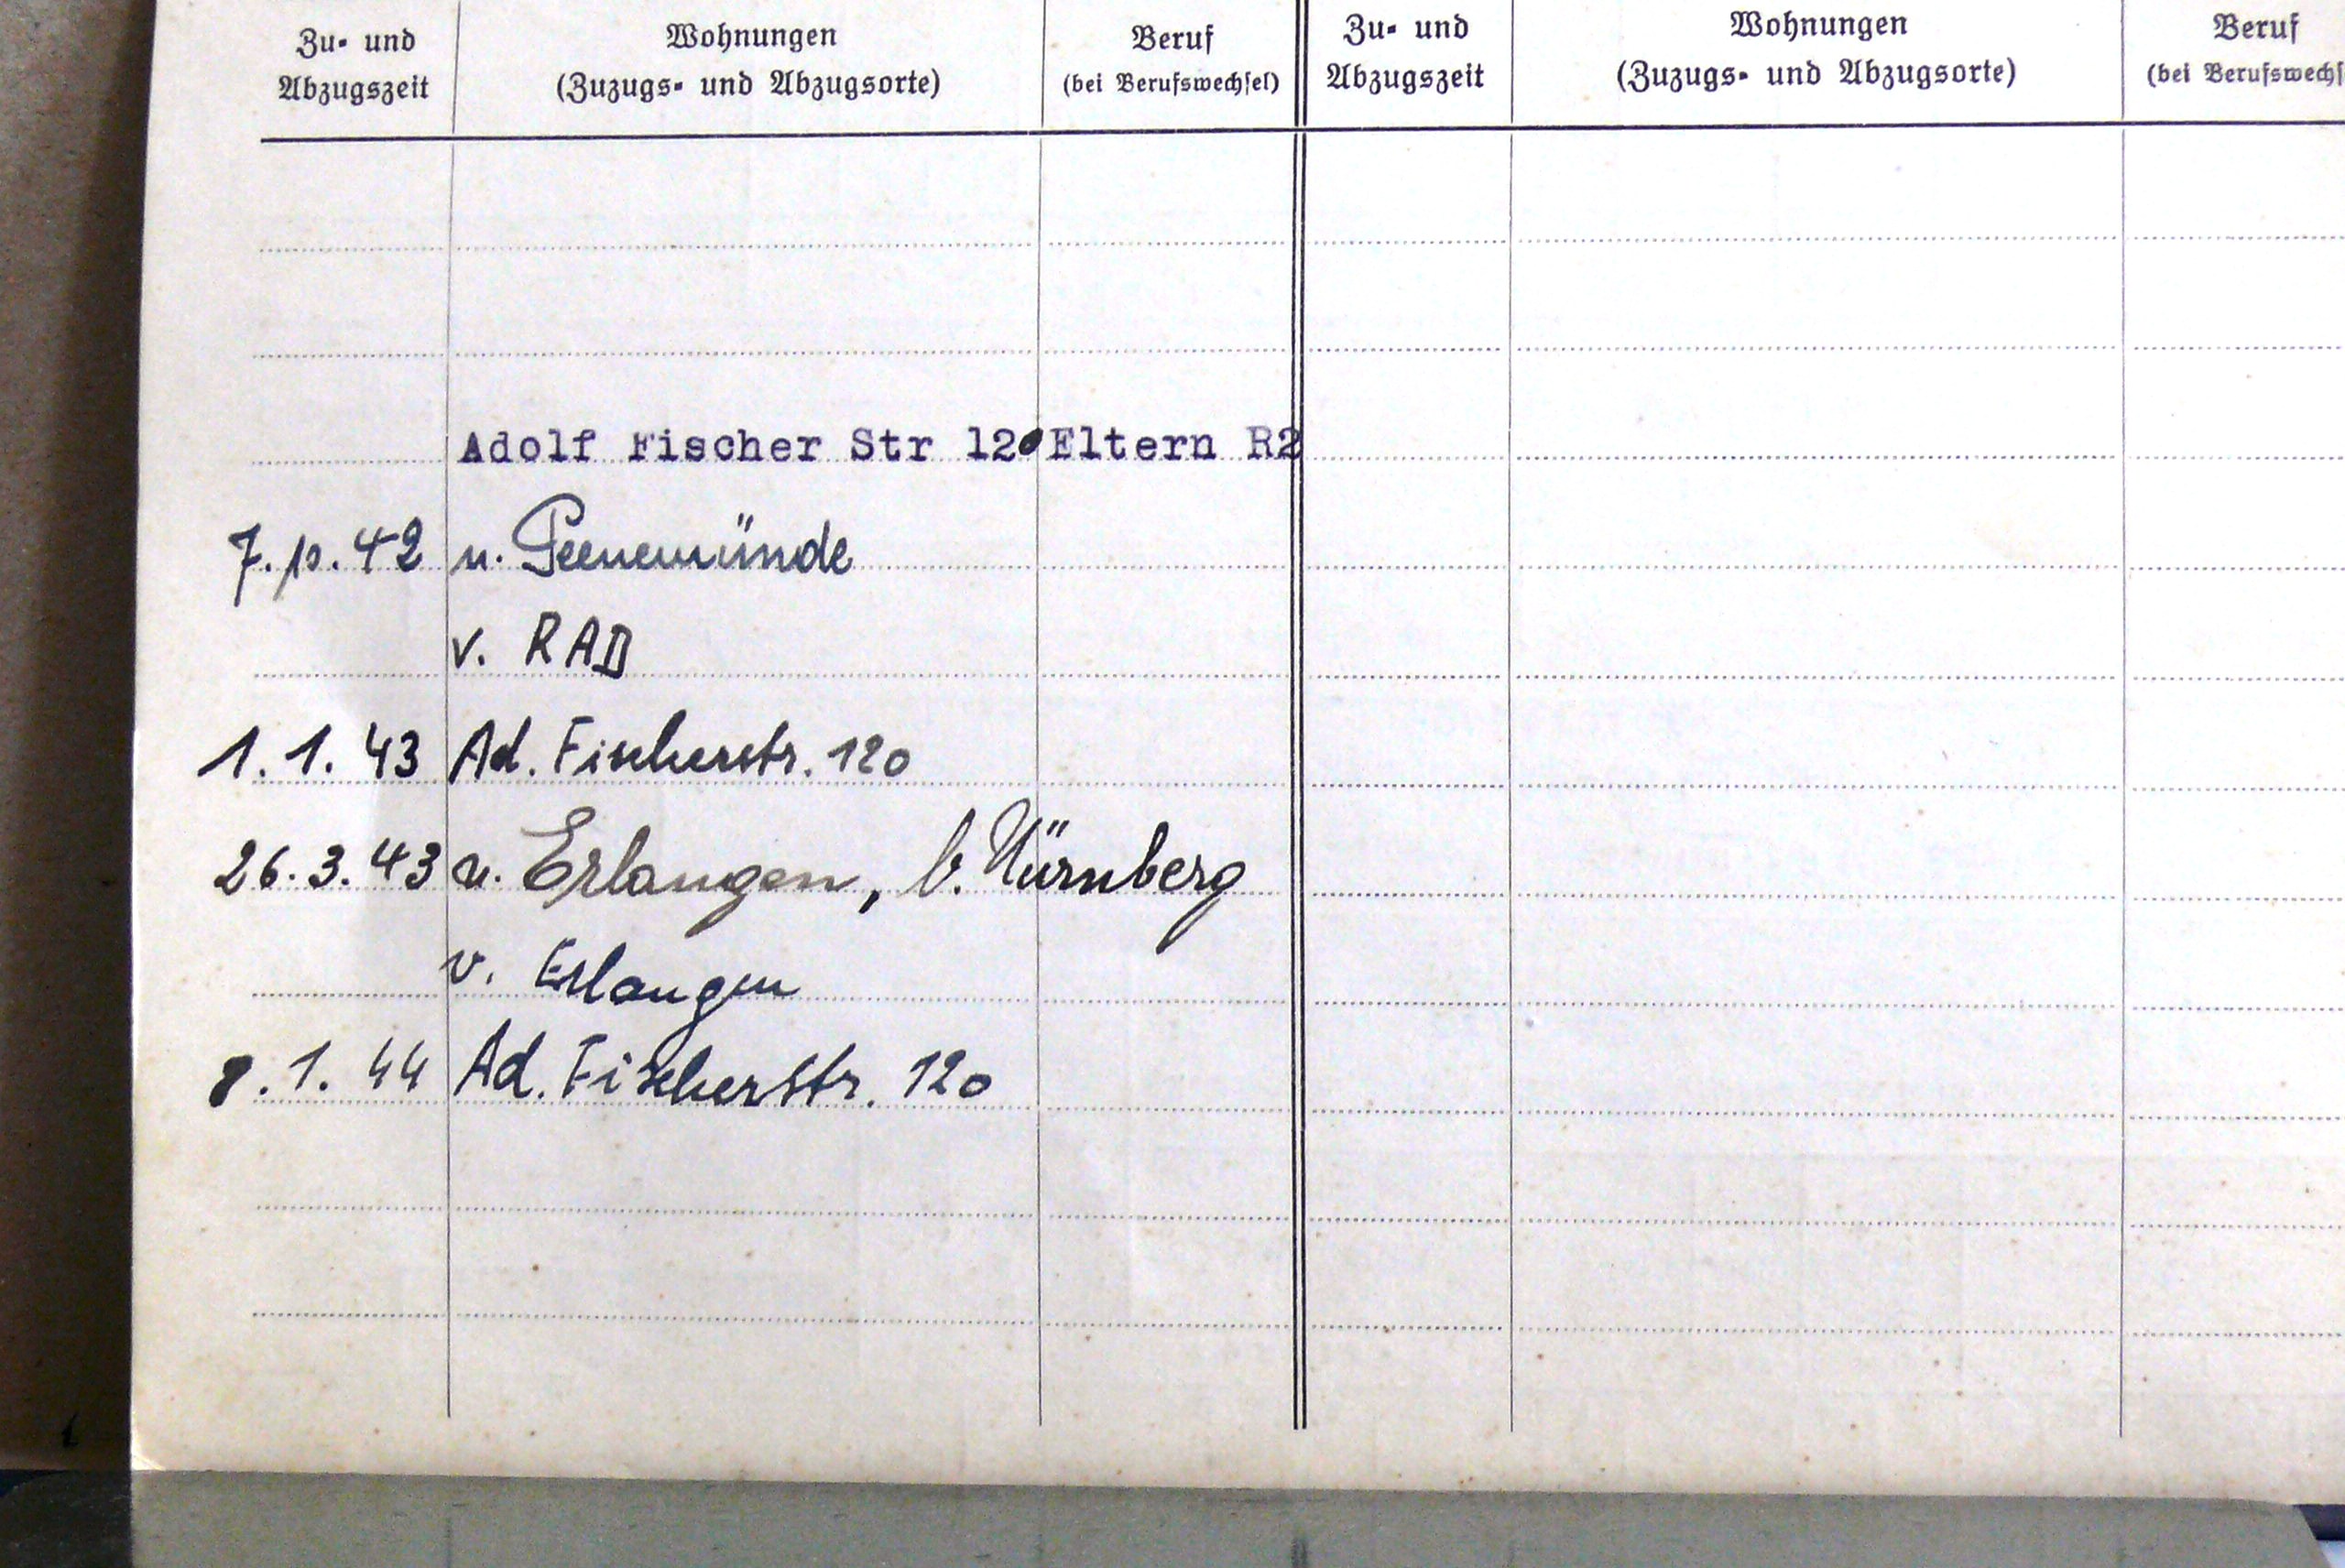 Zu- und
Abzugszeit
Wohnungen
(Zuzugs- und Abzugsorte)
Beruf
(bei Berufswechsel)
Zu- und
Abzugszeit
Wohnungen
(Zuzugs- und Abzugsorte)
Beruf
(bei Berufswechs
Adolf Fischer Str 120 Eltern R2
7.10.42 n. Peenemünde
v. RAD
1.1.43 Ad. Fischerstr. 120
26.3.43 n. Erlangen, b. Nürnberg
v. Erlangen
8.1.44 Ad. Fischerstr. 120